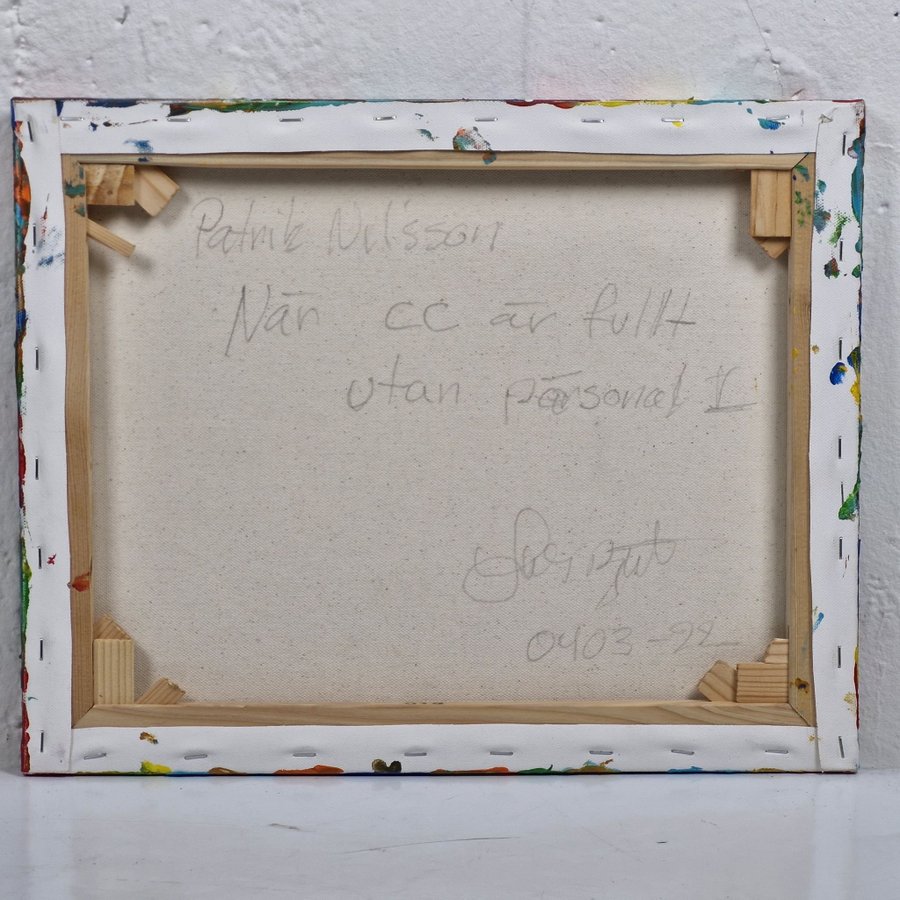 Patrik Nilsson
När cc är fullt
utan pärsonal II
0403-22